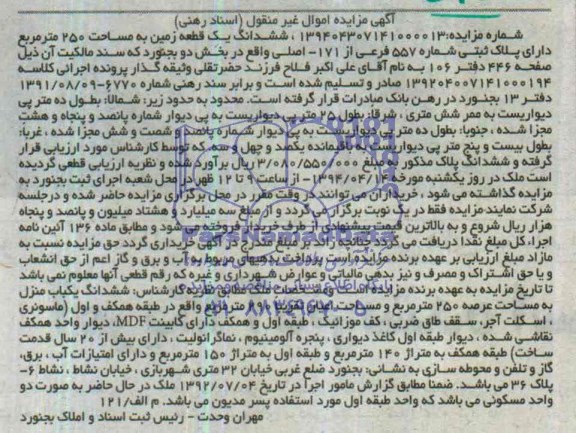 آگهی مزایده اموال غیر منقول (اسناد رهنی)
شماره مزایده:۱۳۹۴۰۴۳۰۷۱۴۱۰۰۰۰۱۳ ، ششدانگ یک قطعه زمین به مساحت ۲۵۰ مترمربع
دارای پلاک ثبتی شماره ۵۵۷ فرعی از ۱۷۱- اصلی واقع در بخش دو بجنورد که سند مالکیت آن ذیل
صفحه ۴۴۶ دفتر ۱۰۶ به نام آقای علی اکبر فلاح فرزند حضرتقلی وثیقه گذار پرونده اجرائی کلاسه
۱۳۹۲۰۴۰۰۷۱۴۱۰۰۰۱۹۴ صادر و تسلیم شده است و برابر سند رهنی شماره ۶۷۷۰-۱۳۹۱/۰۸/۰۹
دفتر ۱۳ بجنورد در رهن بانک صادرات قرار گرفته است. محدود به حدود زیر: شمالا: بطول ده متر پی
دیواریست به ممر شش متری ، شرقا: بطول ۲۵ متر پی دیواریست به پی دیوار شماره پانصد و پنجاه و هشت
مجزا شده ، جنوبا: بطول ده متر پی دیواریست به پی دیوار شماره پانصد و شصت و شش مجزا شده ، غربا:
بطول بیست و پنج متر پی دیواریست به باقیمانده یکصد و چهل و سه، که توسط کارشناس مورد ارزیابی قرار
گرفته و ششدانگ پلاک مذکور به مبلغ ۳/۰۸۰/۵۵۰/۰۰۰ ریال برآورد شده و نظریه ارزیابی قطعی گردیده
است ملک در روز یکشنبه مورخه ۱۳۹۴/۰۴/۱۴ – از ساعت ۹ تا ۱۲ ظهر در محل شعبه اجرای ثبت بجنورد به
مزایده گذاشته می شود ، خریداران می توانند در وقت مقرر در محل برگزاری مزایده حاضر شده و درجلسه
شرکت نمایند مزایده فقط در یک نوبت برگزار می گردد و از مبلغ سه میلیارد و هشتاد میلیون و پانصد و پنجاه
هزار ریال شروع و به بالاترین قیمت پیشنهادی از طرف خریدار فروخته می شود و مطابق ماده ۱۳۶ آئین نامه
اجرا، کل مبلغ نقدا دریافت می گردد چنانچه زائد بر مبلغ مندرج در آگهی خریداری گردد حق مزایده نسبت به
مازاد مبلغ ارزیابی بر عهده برنده مزایده است پرداخت بدهیهای مربوط به آب و برق و گاز اعم از حق انشعاب
و یا حق اشتراک و مصرف و نیز بدهی مالیاتی و عوارض شهرداری و غیره که رقم قطعی آنها معلوم نمی باشد
تا تاریخ مزایده به عهده برنده مزایده است وصف مشخصات ملک مطابق نظریه کارشناس: ششدانگ یکباب منزل
به مساحت عرصه ۲۵۰ مترمربع و مساحت اعیان مترمربع واقع در طبقه همکف و اول (ماسونری
، اسکلت آجر، سقف طاق ضربی ، کف موزائیک ، طبقه اول و همکف دارای کابینت MDF، دیوار واحد همکف
نقاشی شده ، دیوار طبقه اول کاغذ دیواری ، پنجره آلومینیوم ، نماگرانولیت ، دارای بیش از ۲۰ سال قدمت
ساخت) طبقه همکف به متراژ ۱۴۰ مترمربع و طبقه اول به متراژ ۱۵۰ مترمربع و دارای امتیازات آب ، برق،
گاز و تلفن و محوطه سازی به نشانی: بجنورد ضلع غربی خیابان ۳۲ متری شهربازی ، خیابان نشاط ، نشاط ۶-
پلاک ۳۶ می باشد. ضمنا مطابق گزارش مامور اجرا در تاریخ ۱۳۹۲/۰۷/۰۴ ملک در حال حاضر به صورت دو
واحد مسکونی می باشد که واحد طبقه اول مورد استفاده پسر مدیون می باشد. م الف/۱۲۱
مهران وحدت – رئیس ثبت اسناد و املاک بجنورد